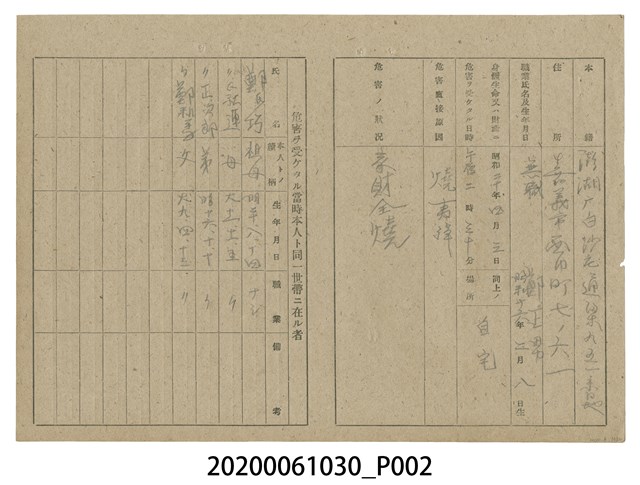 本籍 澎湖庁白沙庄通梁九五一番地
住所 嘉義市 町七ノ六一
職業氏名及生年月日 無職 鄭正男 昭和十 年二月八日生
身體生命又ハ財産ニ危害ヲ受ケタル日時 昭和二十年四月三日 午后二時三十分 同上ノ場所 自宅
危害直接原因 燒夷弾
危害ノ狀況 家財全燒
危害ヲ受ケタル當時本人ト同一世帶ニ在ル者
氏名 本人トノ續柄 生年月日 職業 備考
鄭 祖母 明 八、十四 ナシ
〃 母 大 〃
〃 正次郎 弟 昭十六、十、十 〃
〃 鄭 女 大九、四、十三、 〃
20200061030_P002